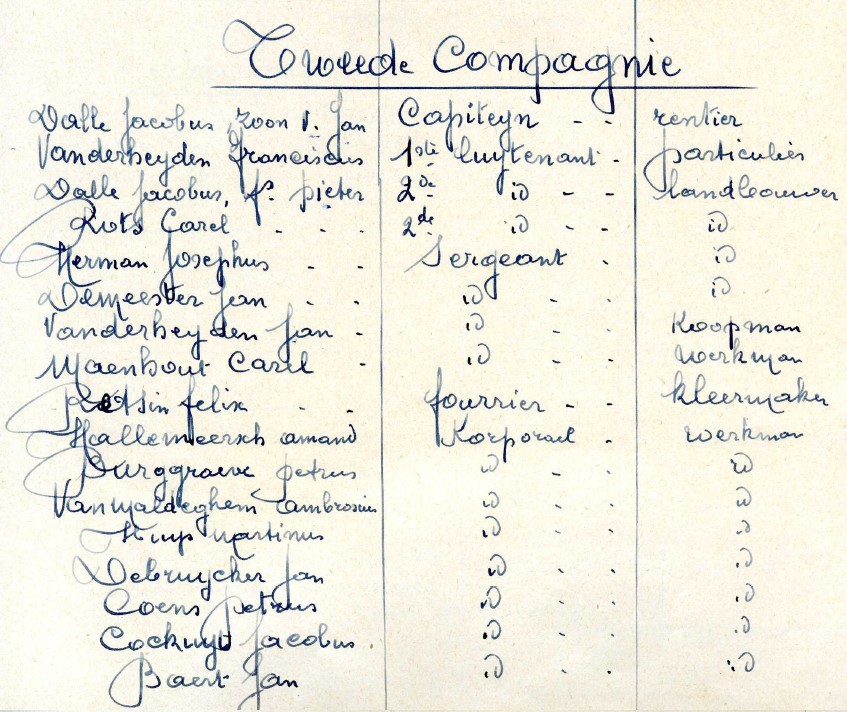 Tweede Compagnie
Dalle Jacobus, zoon v. Jan Capiteyn - - rentier
Vanderheyden Franciscus 1ste luytenant - particulier
Dalle Jacobus, fs. pieter 2de id - - landbouwer
Rots Carel - - - 2de id - - id
Herman Josephus - - Sergeant - id
Demeester Jan - - id - - id
Vanderheyden Jan - id - - Koopman
Maenhout Carel - id - - werkman
felix - - fourrier - - kleermaker
Hallemeersch amand Korporael - werkman
Burggraeve petrus id - - id
Vanmaldeghem ambrosius id - - id
martinus id - - id
Debruycker Jan id - - id
Coens petrus id - - id
Cockuyt Jacobus id - - id
Baert Jan id - - id